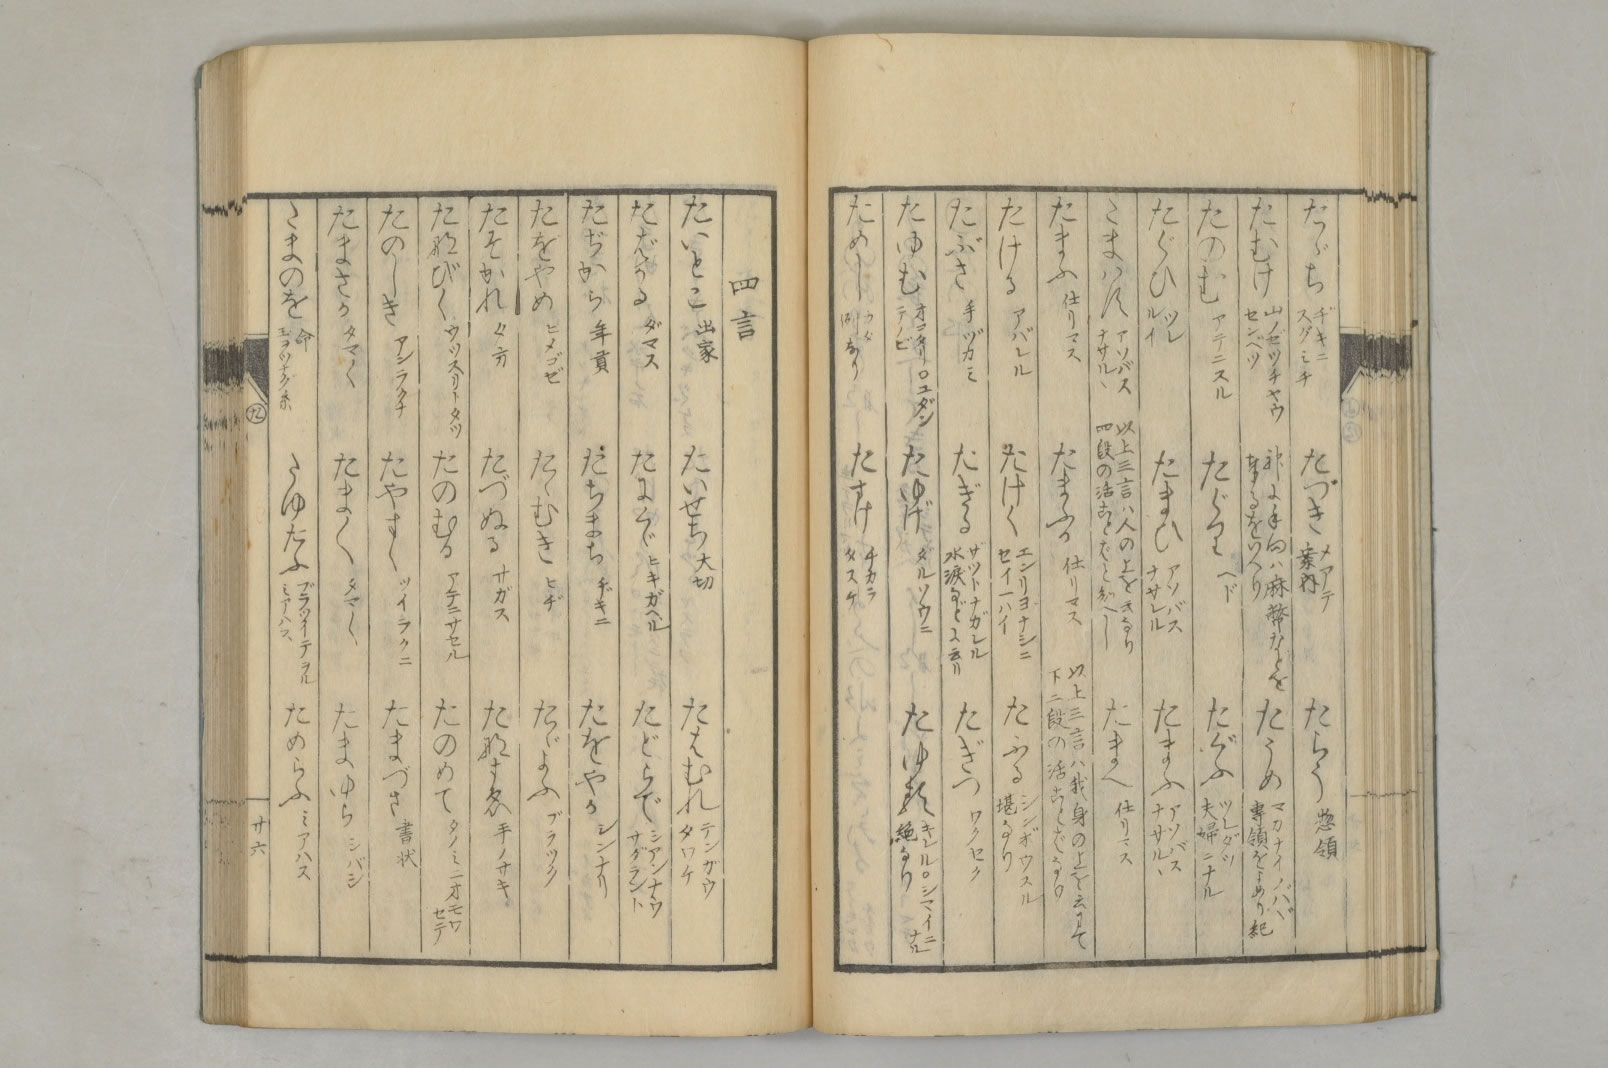 たゞち ヂキニ スグミチ
たづき メアテ 案内
たらう 惣領
たむけ 山ノゼツチヤウ センベツ
たうめ マカナイノバヾ 専領をよめり 紀
たのむ アテニスル
たぐり ヘド
たぐふ ツレダツ 夫婦ニナル
たぐひ ツレ ルイ
たまひ アソバス ナサレル
たまふ アソバス ナサル丶
アソバス ナサル丶
以上三言ハ人の上を
四段の活
たまへ 仕リマス
たまふ 仕リマス
たまふる 仕リマス
以上三言ハ我身の上を云
下二段の活
たける アバレル
たけく エンリヨナシニ セイ一ハイ
たふる シンボウスル 堪るなり
たぶさ 手ヅカミ
たぎる ザツトナガレル 水涙などに云り
たぎつ ワクセク
たゆむ オコタリ○ユダン テノビ
たゆげ ダルソウニ
たゆる キレル○シマイニナル 絶るなり
ためし カタ 例なり
たすけ チカラ タスケ
四言
たいとこ 出家
たいせち 大切
たはむれ テンガウ タワケ
たばかる ダマス
ヒキガヘル
たどらで シアンナウ サグラント
たぢから 年貢
たちまち ヂキニ
たをやか シンナリ
たをやめ ヒメゴゼ
たゞむき ヒヂ
たゞよふ ブラツク
たそかれ 夕方
たづぬる サガス
たなすゑ 手ノサキ
たなびく ウツスリトタツ
たのむる アテニサセル
たのめて タノミニオモワセテ
たのしき アンラクナ
たやすく ツイラクニ
たまづさ 書状
たまさか タマ〱
たま〱 タマ〱
たまゆら シバシ
たまのを 命
たゆたふ ブラツイテヲル ミアハス
ためらふ ミアハス
た
廿六